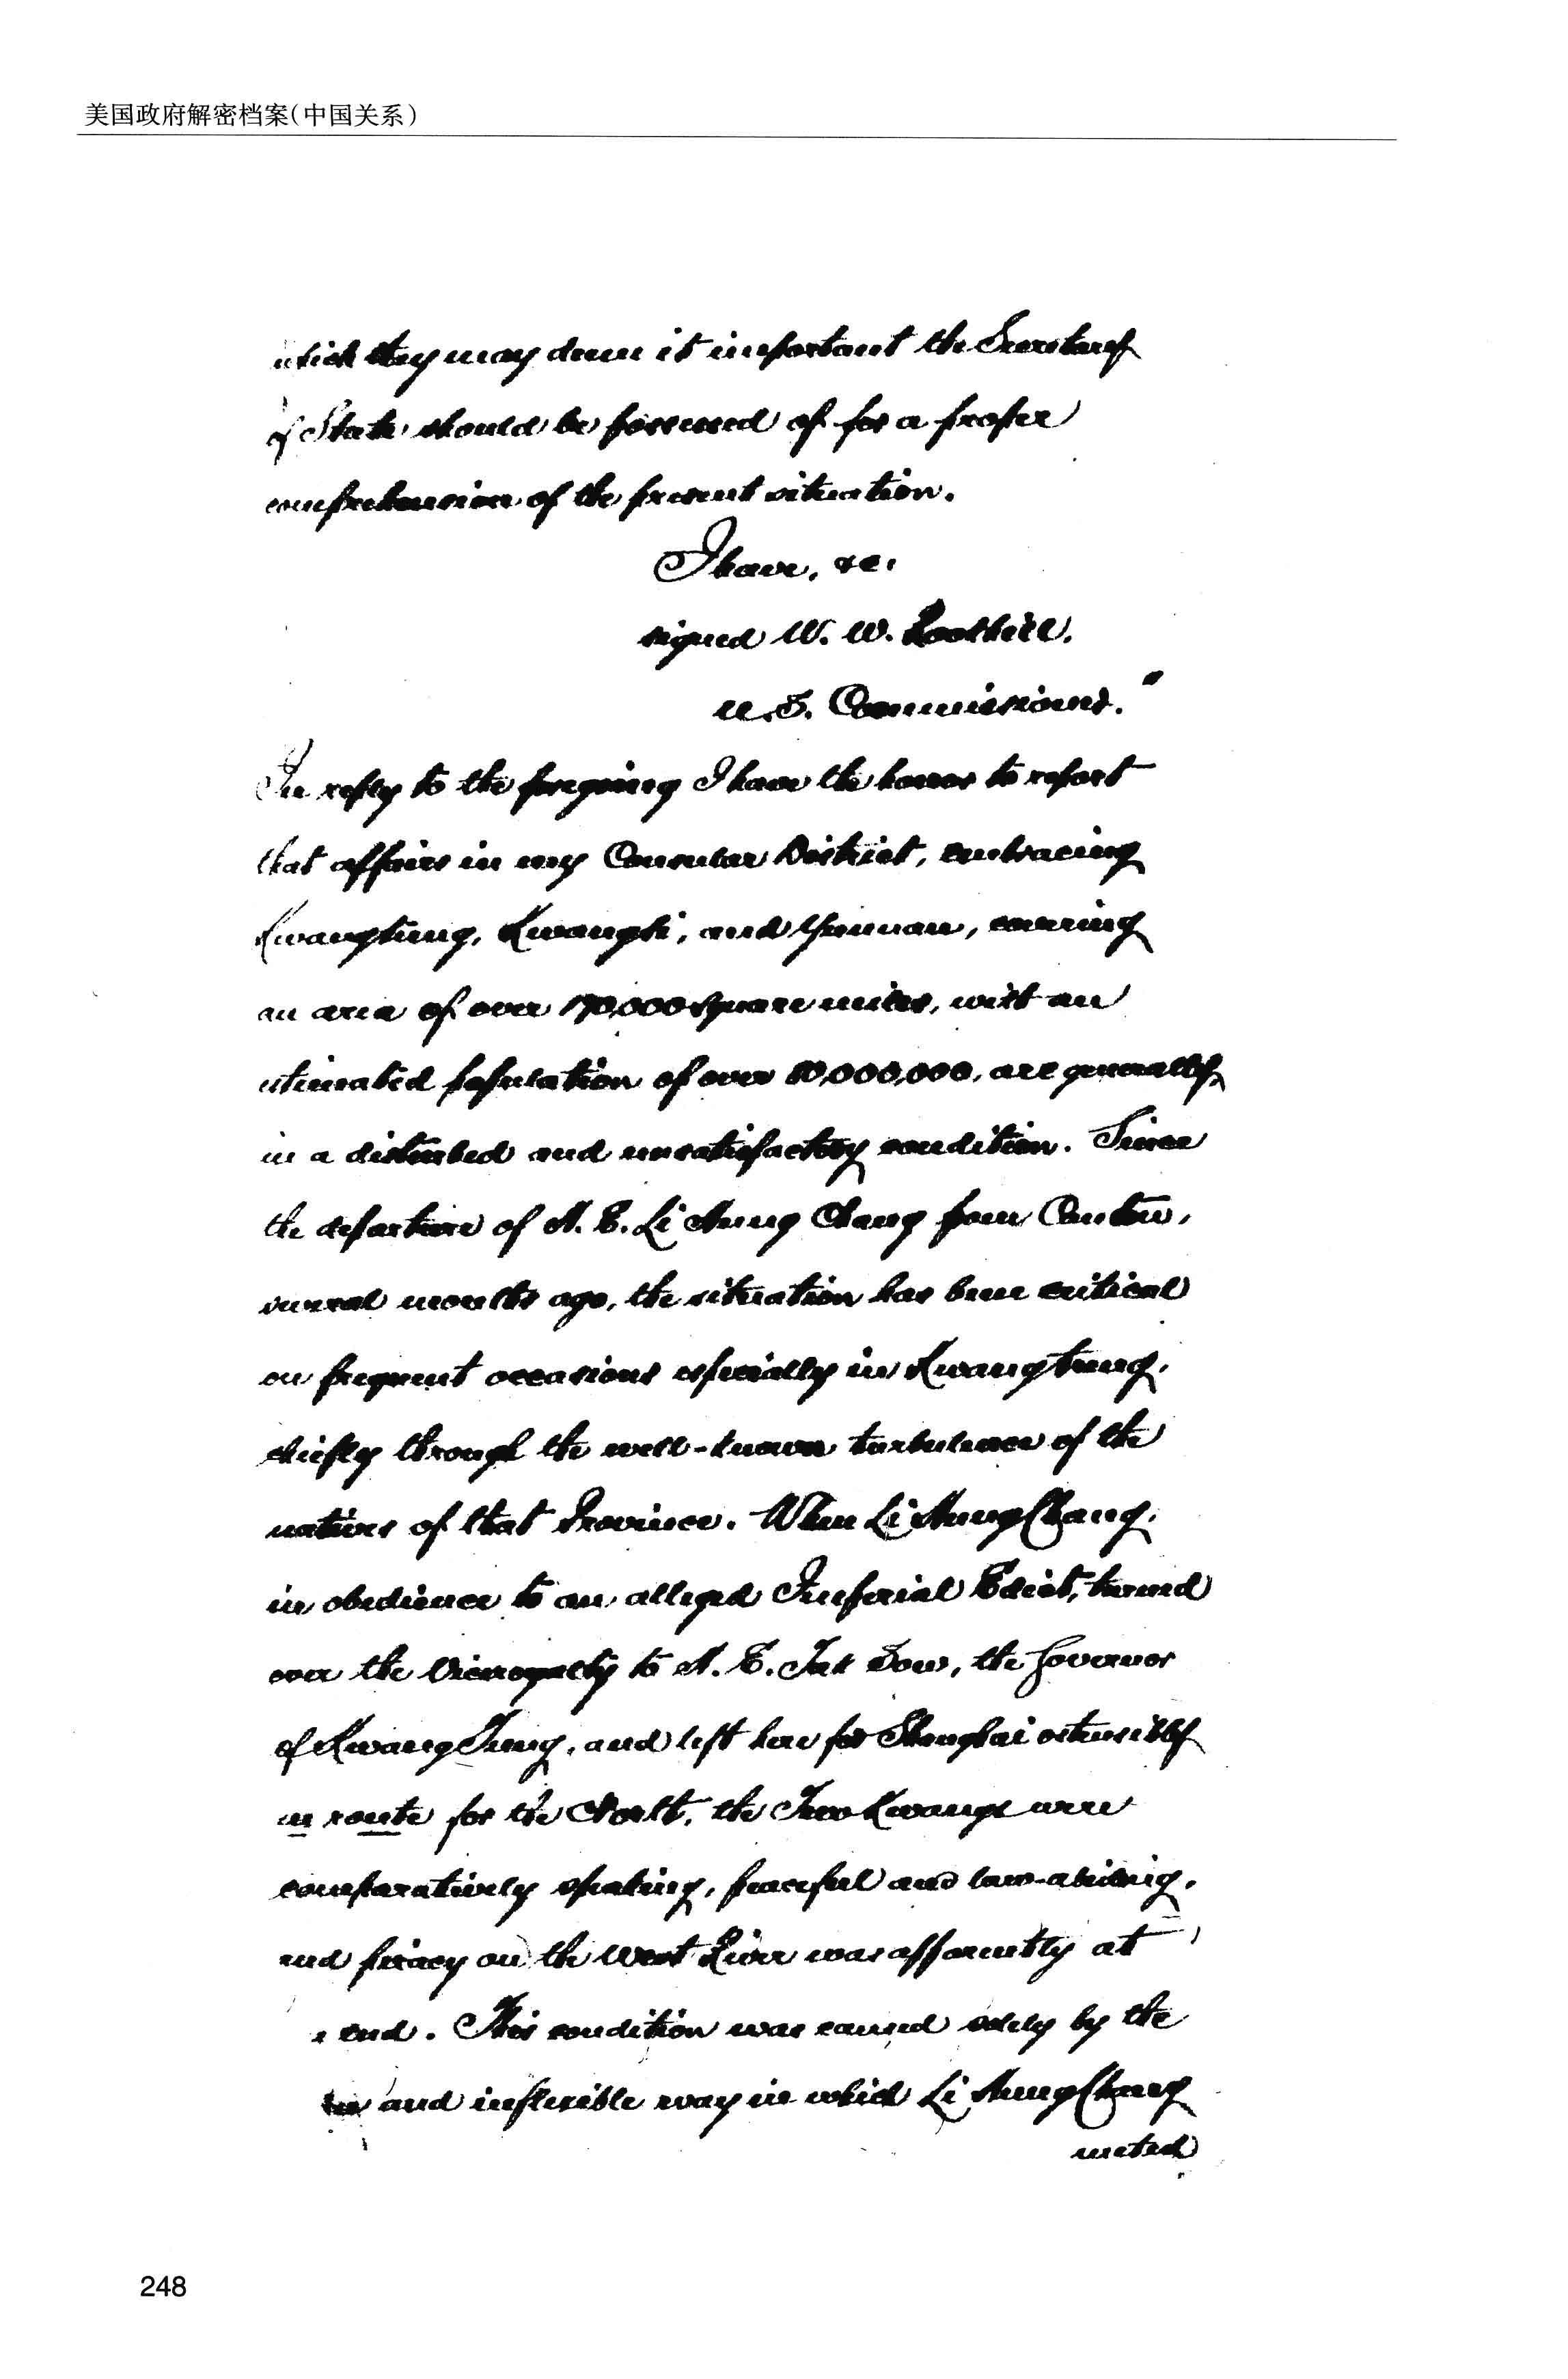 美国政府解密档案(中国关系)
which they may deem it important the Secretary
of State should be possessed of for a proper
comprehension of the present situation.
I have, &c.
signed W. W. Rockhill.
U.S. Commissioner."
In reply to the foregoing I have the honor to report
that affairs in my Consular District, embracing
Kwangtung, Kwangsi, and Yunnan, covering
an area of over 170,000 square miles, with an
estimated population of over 80,000,000, are generally
in a disturbed and unsatisfactory condition. Since
the departure of H. E. Li Hung Chang from Canton,
several months ago, the situation has been critical
on frequent occasions especially in Kwangtung,
chiefly through the well-known turbulence of the
natives of that Province. When Li Hung Chang,
in obedience to an alleged Imperial Edict, turned
over the Viceroyalty to H. E. Tak Sow, the Governor
of Kwang Tung, and left here for Shanghai ostensibly
en route for the North, the Two Kwangs were
comparatively speaking, peaceful and law-abiding,
and piracy on the West River was apparently at
end. This condition was caused solely by the
and inflexible way in which Li Hung Chang
meted
248